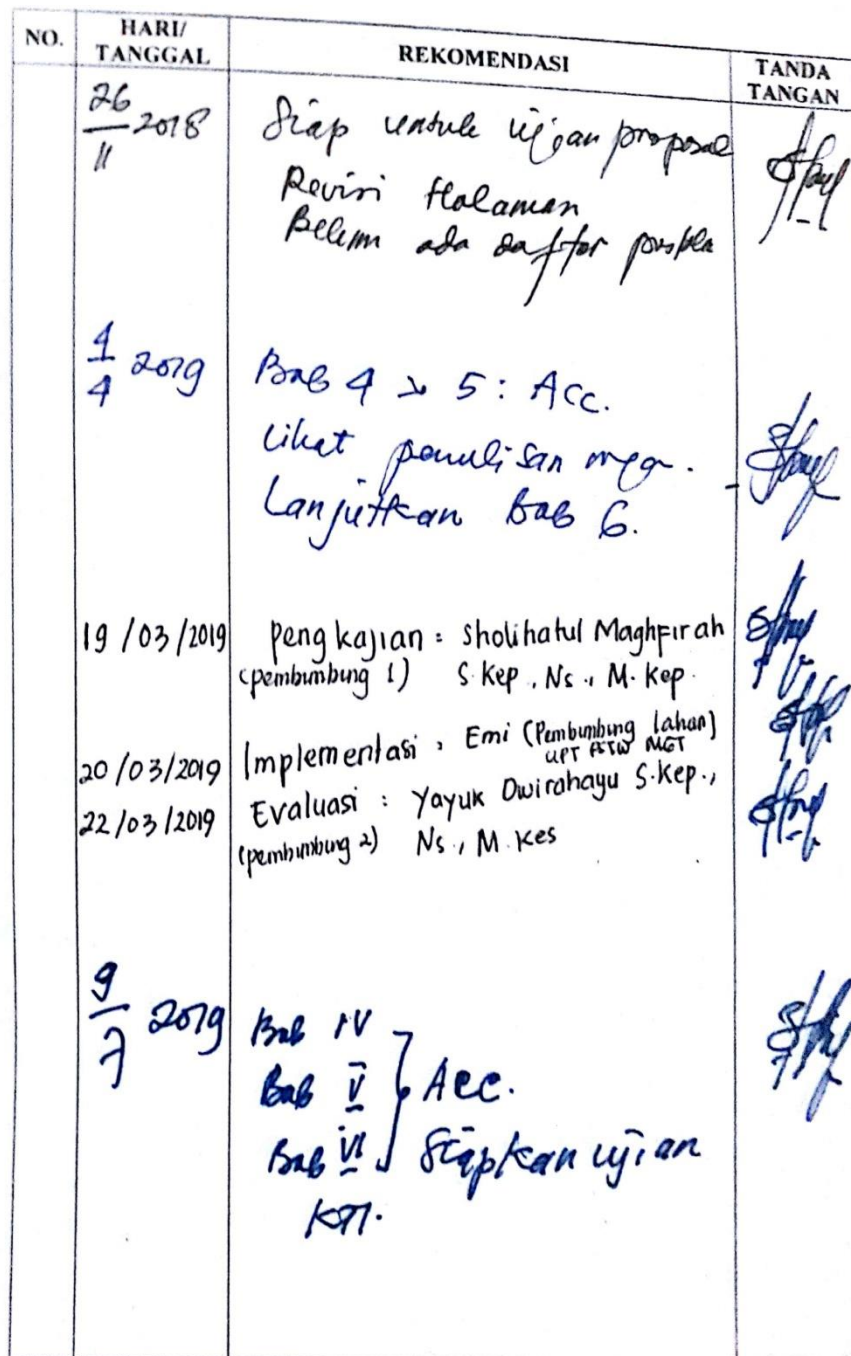 NO.
HARI/
TANGGAL
REKOMENDASI
TANDA
TANGAN
26/11 2018
Siap untuk ujian proposal
Revisi Halaman
Belum ada daftar pustaka
4/4 2019
Bab 4 & 5 : Acc.
Lihat penulisan nya.
Lanjutkan Bab 6.
19/03/2019 Pengkajian : Sholihatul Maghfirah
(pembimbing 1) S.Kep., Ns., M.Kep.
20/03/2019 Implementasi : Emi (Pembimbing lahan)
UPT PSTW MGT
22/03/2019 Evaluasi : Yayuk Dwirahayu S.Kep.,
(pembimbing 2) Ns., M.Kes
9/7 2019
Bab IV
Bab V } Acc.
Bab VI Siapkan ujian
KTI.